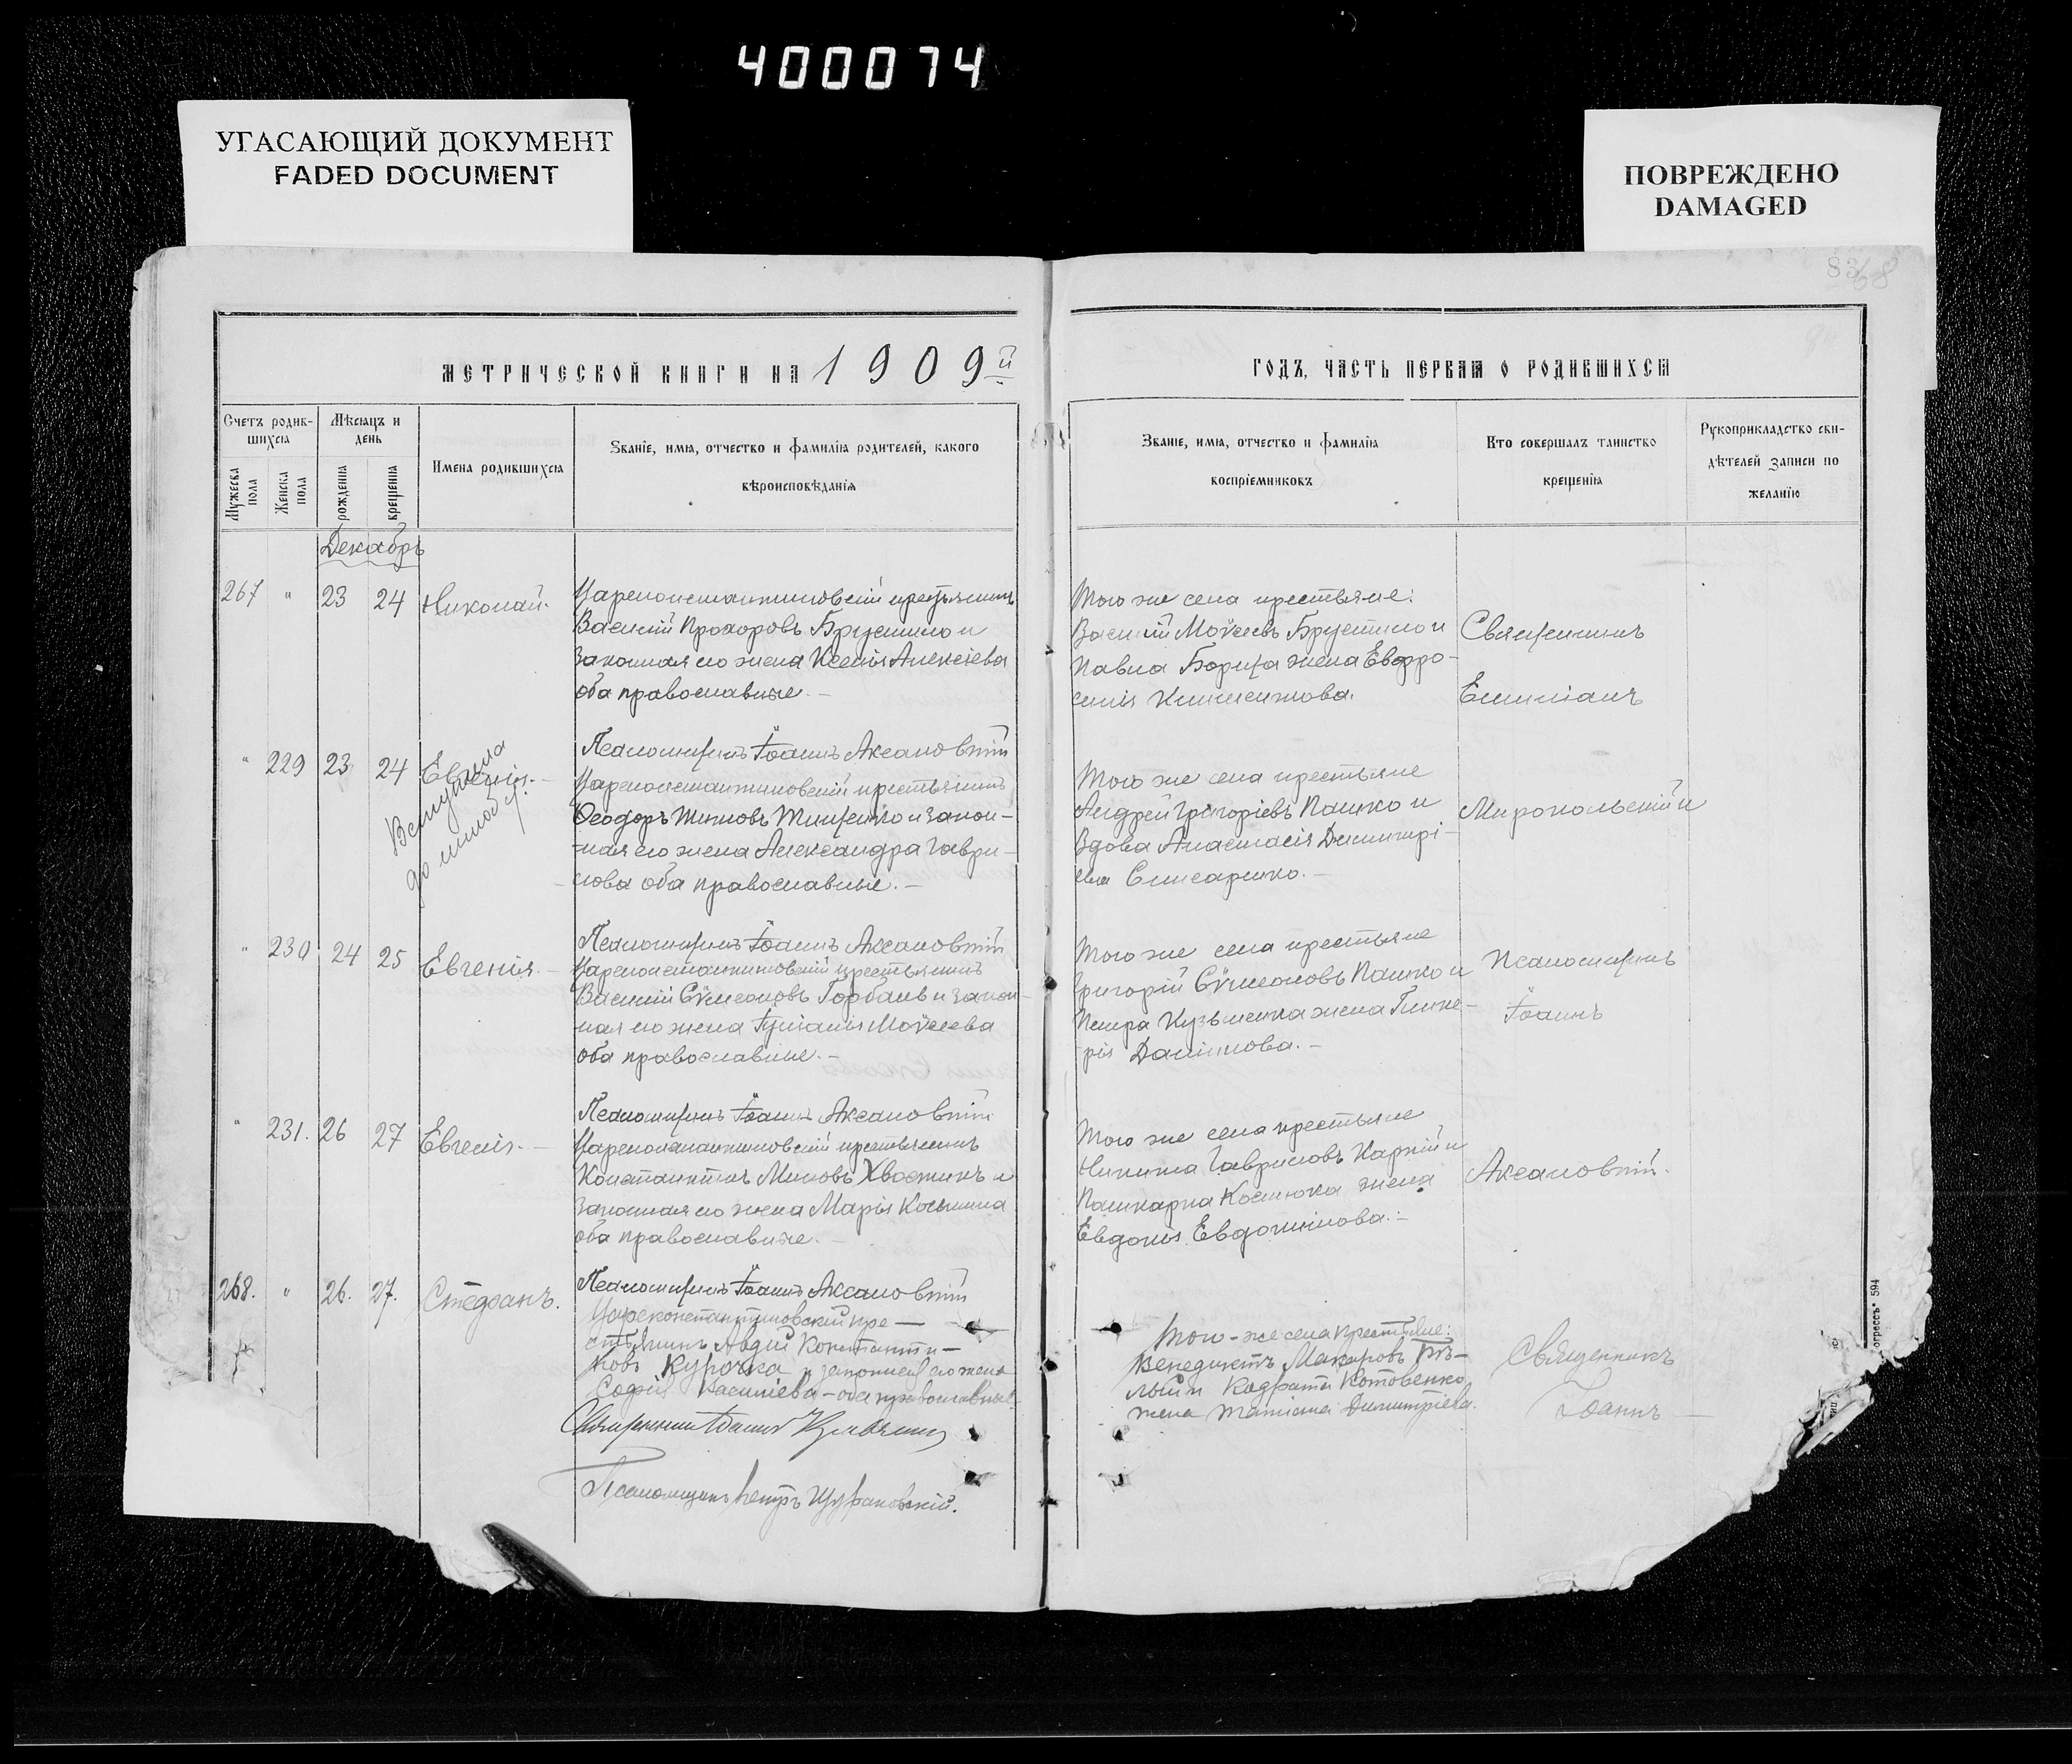 400074
УГАСАЮЩИЙ ДОКУМЕНТ
FADED DOCUMENT
ПОВРЕЖДЕНО
DAMAGED
МЕТРИЧЕСКОЙ КНИГИ НА 1909й
ГОДЪ, ЧАСТЬ ПЕРВАЯ О РОДИВШИХСЯ
Счетъ родив-
шихся
Мужеска пола
Женска пола
Мѣсяцъ и
день
рожденія
крещенія
Имена родившихся
Званіе, имя, отчество и фамилія родителей, какого
вѣроисповѣданія
Званіе, имя, отчество и фамилія
воспріемниковъ
Кто совершалъ таинство
крещенія
Рукоприкладство сви-
дѣтелей записи по
желанію
Декабрь
267 " 23 24 Николай.
Цареконстантиновскій крестьянинъ
Василій Прохоровъ и
законная его жена Ксенія Алексіева
оба православные.
Того же села крестьяне:
Василій Моѵсеевъ и
Павла жена Евфро-
синія Климентова.
Священникъ
Емиліанъ
" 229 23 24 Евгенія.
Псаломщикъ Іоаннъ Аксановскій
Цареконстантиновскій крестьянинъ
Ѳеодоръ Титовъ Тищенко и закон-
ная его жена Александра Гаври-
лова оба православные.
Того же села крестьяне
Андрей Григоріевъ Пашко и
вдова Анастасія Димитрі-
ева
Миропольскій и
" 230 24 25 Евгенія.
Псаломщикъ Іоаннъ Аксановскій
Цареконстантиновскій крестьянинъ
Василій Сѵмеоновъ Горбань и закон-
ная его жена Іуліанія Моѵсеева
оба православные.
Того же села крестьяне
Григорій Сѵмеоновъ Пашко и
Петра Кузьменка жена Глике-
рія Даніилова.
Псаломщикъ
Іоаннъ
" 231. 26 27 Евгенія.
Псаломщикъ Іоаннъ Аксановскій
Цареконстантиновскій крестьянинъ
Константинъ Хвостикъ и
законная его жена Марія Косьмина
оба православные.
Того же села крестьяне
Никита Гавриловъ и
жена
Евдокія Евдокимова.
Аксановскій.
268. " 26. 27. Стефанъ.
Псаломщикъ Іоаннъ Аксановскій
Цареконстантиновскій кре-
стьянинъ Авдій Константи-
новъ Курочка и законная его жена
Софія Василіева - оба православные.
Того-же села крестьяне:
Венедиктъ Макаровъ
Кодрата Котовенко
жена Татіана Димитріева.
Священникъ
Іоаннъ
Священникъ Іоаннъ
Псаломщикъ Петръ